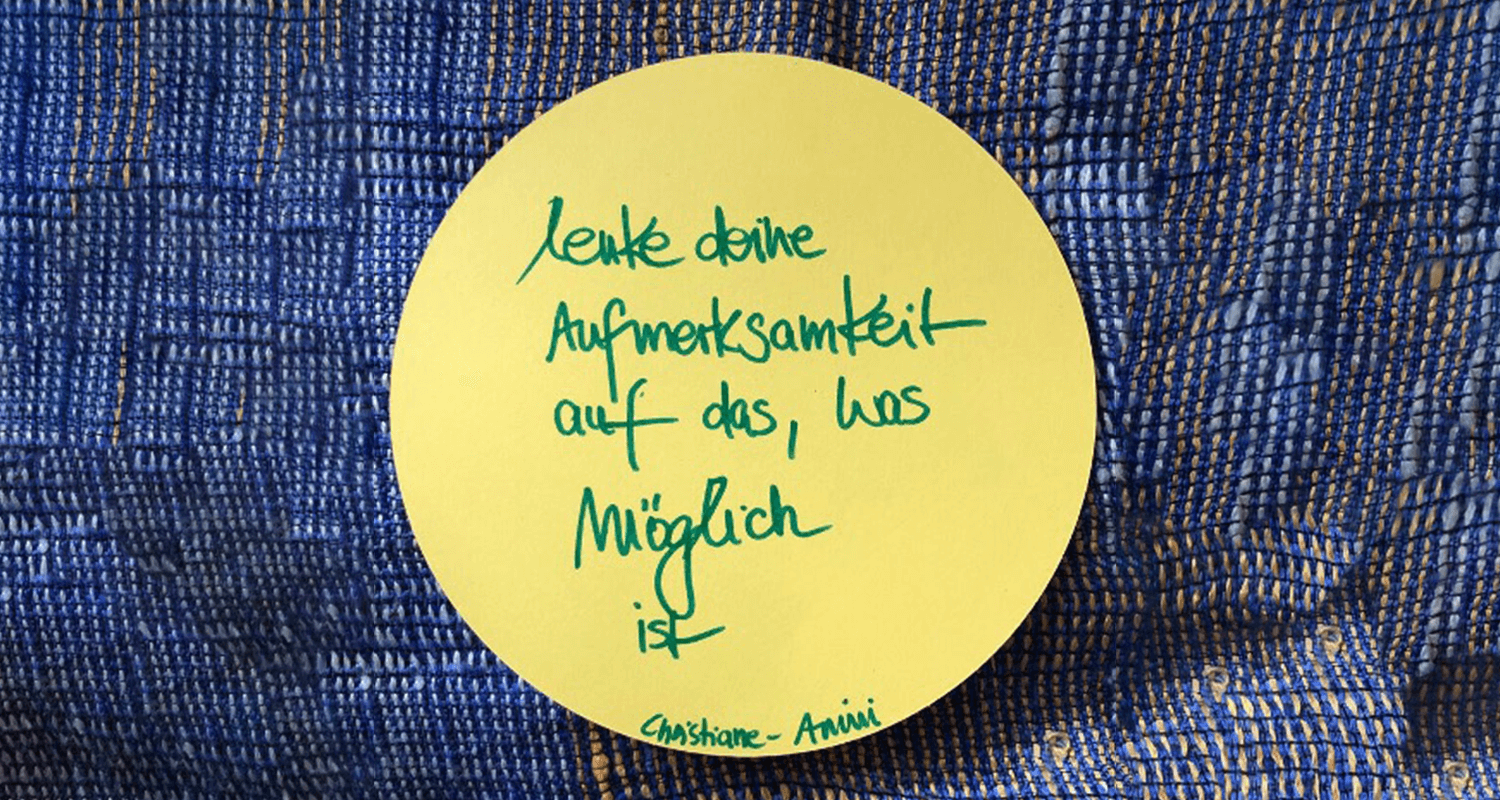 lenke deine
Aufmerksamkeit
auf das, was
Möglich
ist
Christiane - Amini